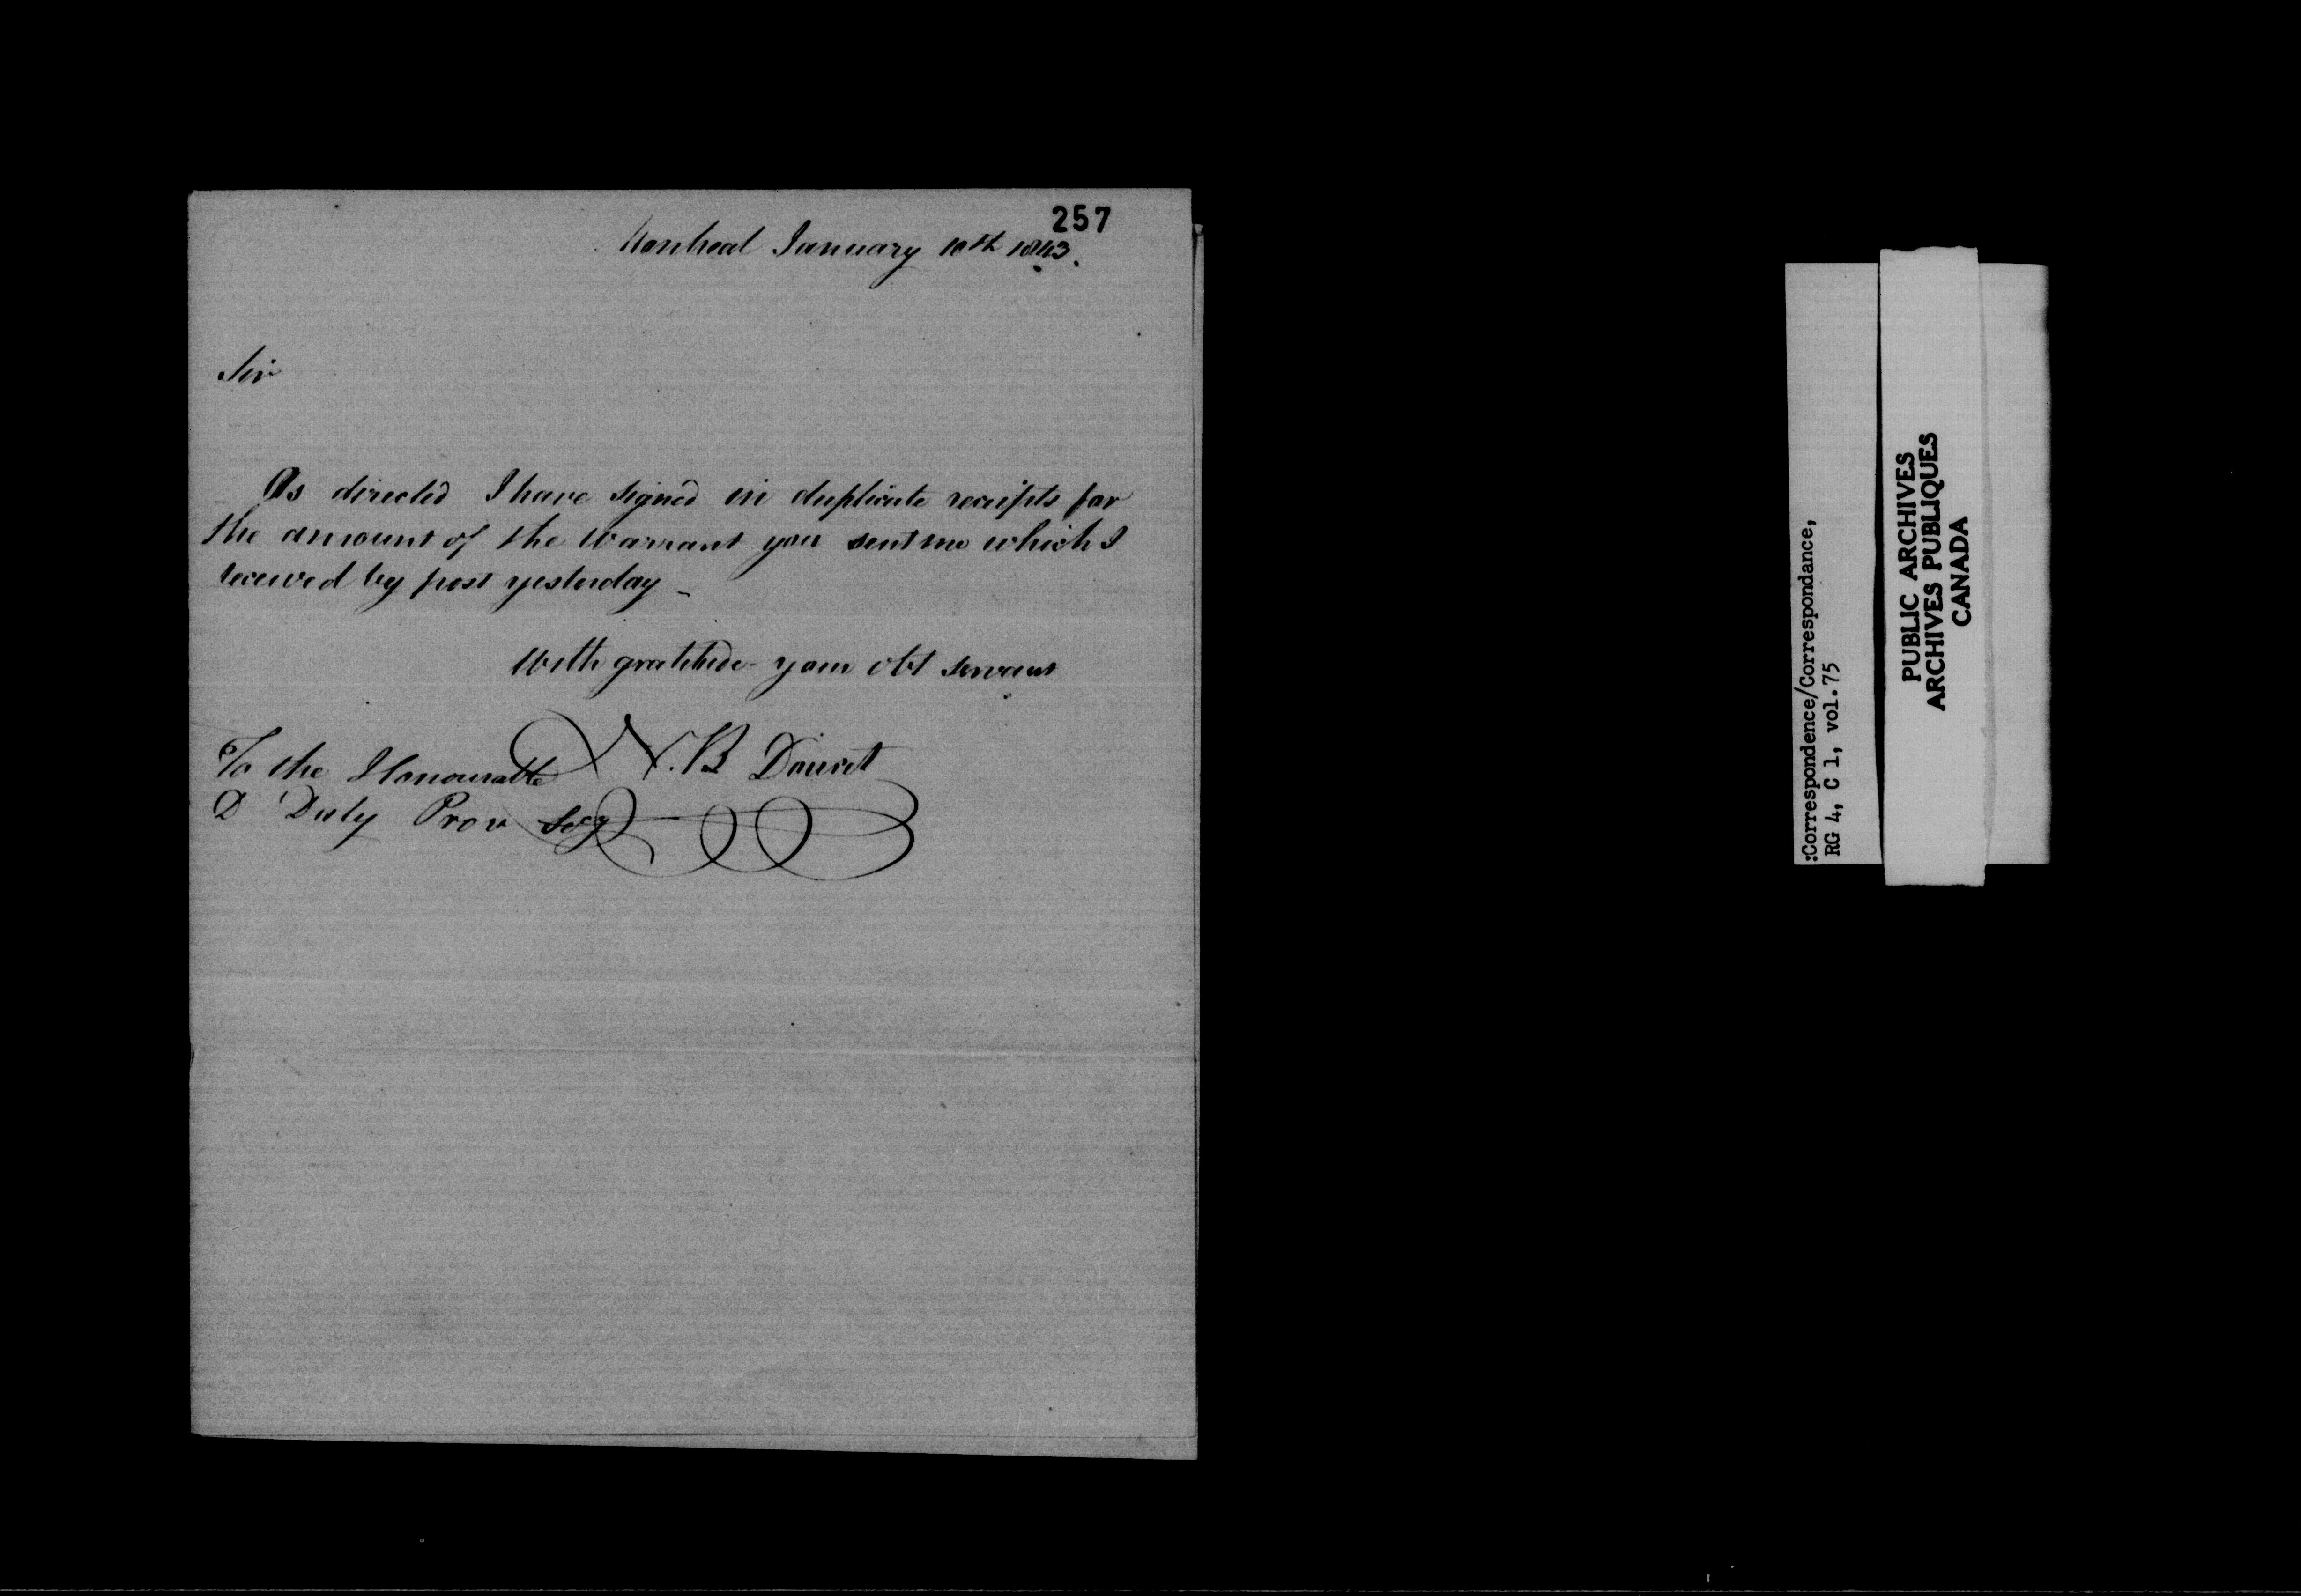 257
Montreal January 10th 1843.
Sir
As directed I have signed in duplicate receipts for
the amount of the Warrant you sent me which I
received by post yesterday _
With gratitude your obt servant
N. B Doucet
To the Honourable
D Daly Prov Secy
:Correspondence/Correspondance,
RG 4, C 1, vol.75
PUBLIC ARCHIVES
ARCHIVES PUBLIQUES
CANADA